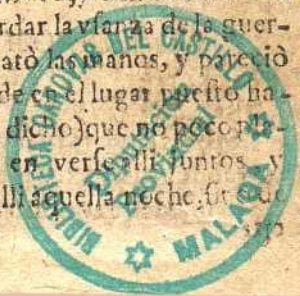 rdar la vsanza de la guer-
atò las manos, y pareciò
de en el lugar puesto ha-
dicho) que no poco
en verse alli juntos y
lli aquella noche,
BIBLIOTECA CANOVAS DEL CASTILLO
Diputación
Provincial
MALAGA